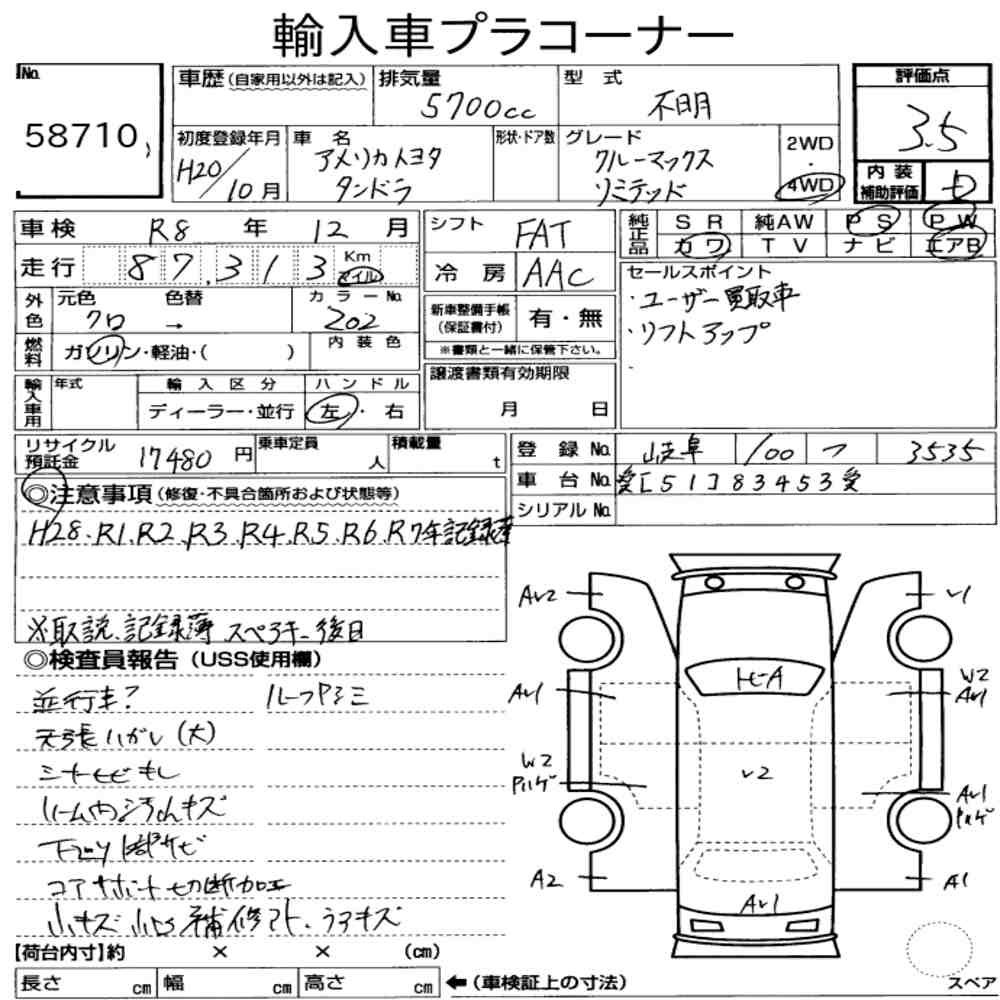 輸入車プラコーナー
No.
58710
車歴(自家用以外は記入)
排気量
5700cc
型式
不明
評価点
3.5
初度登録年月
H20/10月
車名
アメリカトヨタ
タンドラ
形状・ドア数
グレード
クルーマックス
リミテッド
2WD
・
4WD
内装
補助評価
D
車検 R8 年 12 月
走行 87,313 Km
マイル
シフト FAT
冷房 AAC
純正品
SR 純AW PS PW
カワ TV ナビ エアB
外色
元色 色替 カラーNo.
クロ → 202
燃料
ガソリン・軽油・( )
内装色
新車整備手帳
(保証書付)
有・無
※書類と一緒に保管下さい。
セールスポイント
・ユーザー買取車
・リフトアップ
輸入車用
年式
輸入区分
ハンドル
ディーラー・並行
左・右
譲渡書類有効期限
月 日
リサイクル
預託金
17480円
乗車定員
人
積載量
t
登録No. 岐阜 100 つ 3535
車台No. [51]83453
シリアルNo.
◎注意事項(修復・不具合箇所および状態等)
H28.R1.R2.R3.R4.R5.R6.R7年記録簿
※取説、記録簿 スペアキー後日
◎検査員報告(USS使用欄)
並行車? ルーフヤネ
天張ハガレ(大)
シートヒビキレ
ルーム内 キズ
下回り サビ
コアサポート切断加工
小キズ 補修アト、 キズ
AV2
V1
AV1
W2
AV1
トビA
W2
V2
AV1
A2
A1
AV1
【荷台内寸】約 × × (cm)
長さ cm 幅 cm 高さ cm
←(車検証上の寸法)
スペア